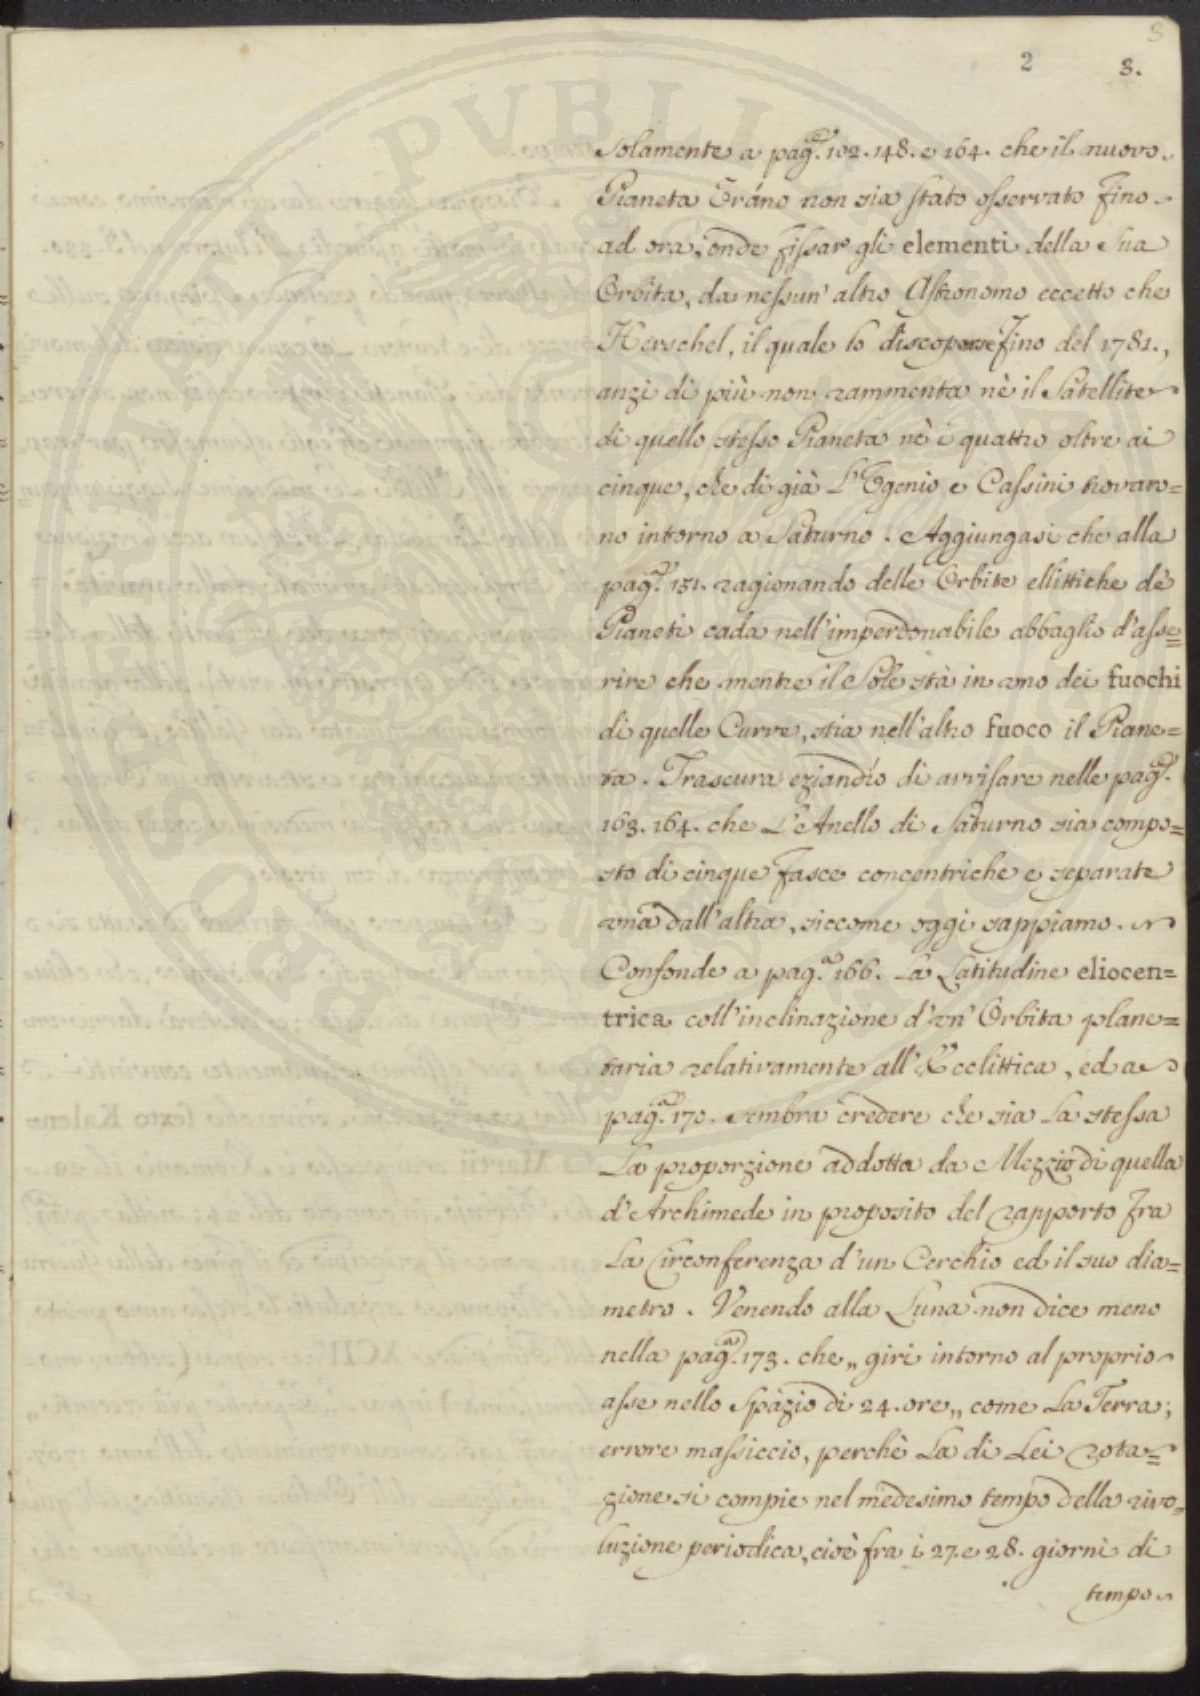 2 3.
solamente a pag.ª 102. 148. e 164. che il nuovo
Pianeta Uráno non sia stato osservato fino
ad ora, onde fissar gli elementi della sua
Orbita, da nessun' altro Astronomo eccetto che
Herschel, il quale lo discoperse fino del 1781.,
anzi di più non rammenta nè il Satellite
di quello stesso Pianeta nè i quattro oltre ai
cinque, che di già L'Ugenio e Cassini trovaro=
no intorno a Saturno. Aggiungasi che alla
pag.ª 151. ragionando delle Orbite ellittiche de'
Pianeti cada nell'imperdonabile abbaglio d'asse=
rire che mentre il Sole stà in uno dei fuochi
di quelle Curve, stia nell'altro fuoco il Piane=
ta. Trascura eziandìo di avvisare nelle pag.ª
163. 164. che L'Anello di Saturno sia compo=
sto di cinque fasce concentriche e separate
una dall'altra, siccome oggi sappiamo.
Confonde a pag.ª 166. La Latitudine eliocen=
trica coll'inclinazione d'un' Orbita plane=
taria relativamente all'Ecclittica, ed a
pag.ª 170. sembra credere che sia La stessa
La proporzione addotta da Mezzio di quella
d'Archimede in proposito del rapporto fra
La Circonferenza d'un Cerchio ed il suo dia=
metro. Venendo alla Luna non dice meno
nella pag.ª 173. che „ giri intorno al proprio
asse nello spazio di 24. ore „ come La Terra;
errore massiccio, perchè La di Lei rota=
zione si compie nel medesimo tempo della rivo=
luzione periodica, cioè fra i 27. e 28. giorni di
tempo